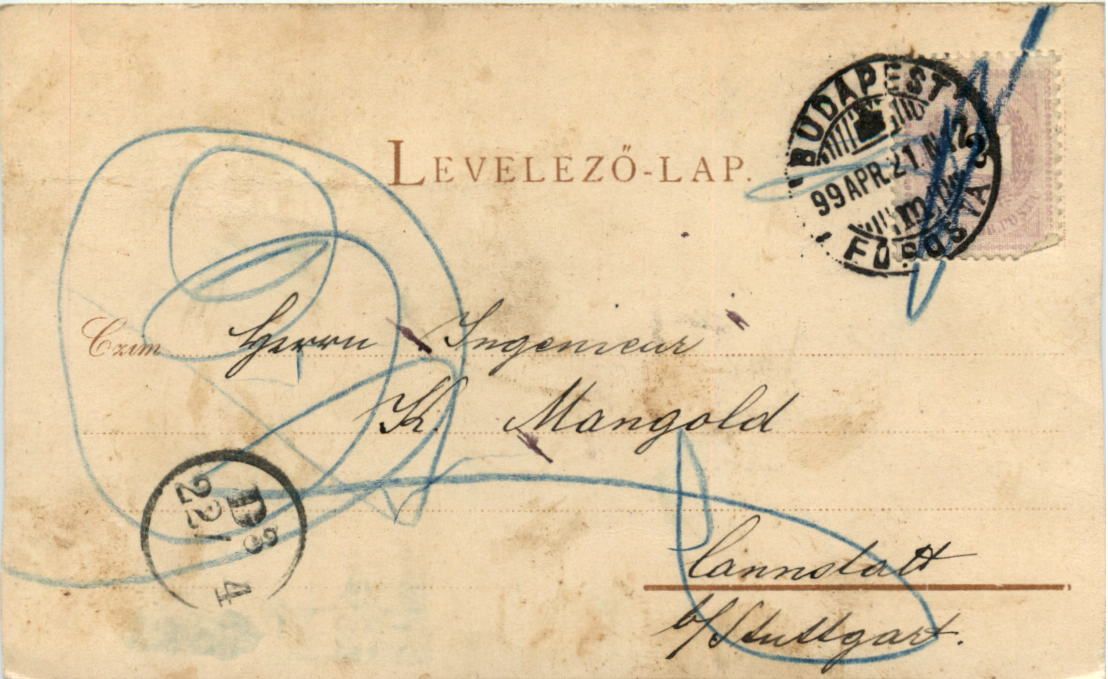 LEVELEZŐ-LAP.
BUDAPEST
99 APR. 21. N
FŐPOSTA
Czim Herrn Ingenieur
K. Mangold
D8
22/4
Cannstatt
b/Stuttgart.